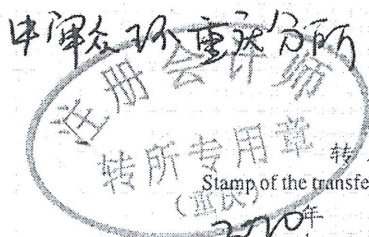 中审众环重庆分所
注册会计师
转所专用章
转
Stamp of the transfe
(重庆)
2020年